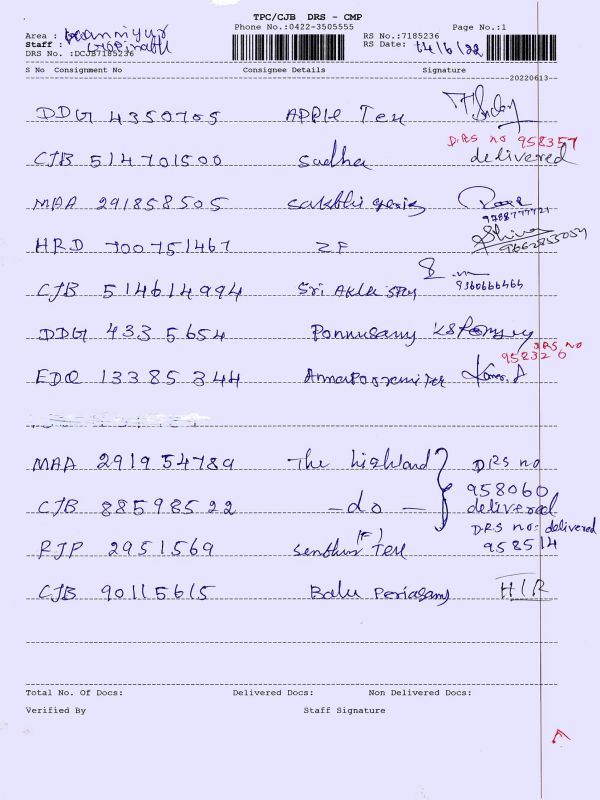 TPC/CJB DRS - CMP
Phone No.:0422-3505555 Page No.:1
Area :
Staff : Gopinath
DRS No. :DCJB7185236
RS No.:7185236
RS Date: 14/6/22
S No Consignment No Consignee Details Signature
20220613
DDG 4350705 APPle Tex
DRS no 958357
CJB 514701500 Sudha delivered
MAA 291858505 Sakthi
9788777721
HRD 700751467 ZF Shiva
9662853054
CJB 514614994 Sri 9360666464
DDG 4335654 Ponnusamy
DRS no
958326
EDQ 13385344
MAA 291954789 The highland DRS no
958060
CJB 88598522 -do- delivered
DRS no: delivered
RJP 2951569 Tex 958514
(F)
CJB 90115615 Balu Periasamy
Total No. Of Docs: Delivered Docs: Non Delivered Docs:
Verified By Staff Signature